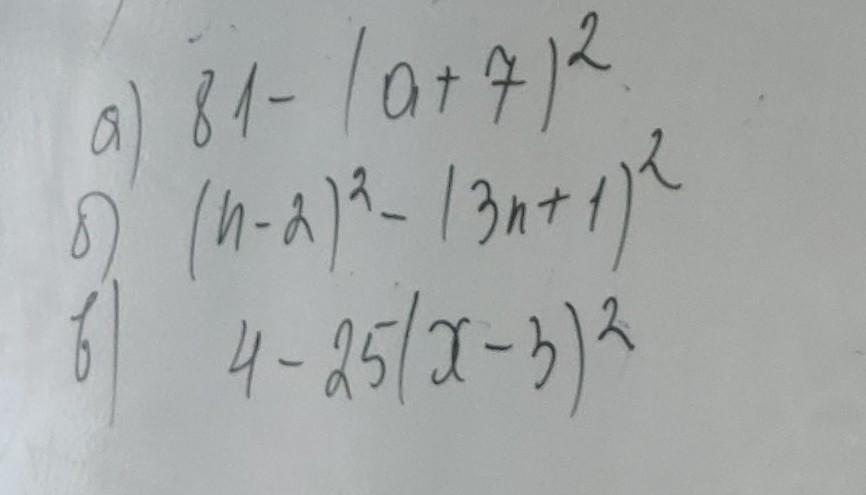 а) 81 - (a + 7)²
б) (n - 2)² - (3n + 1)²
в) 4 - 25(x - 3)²